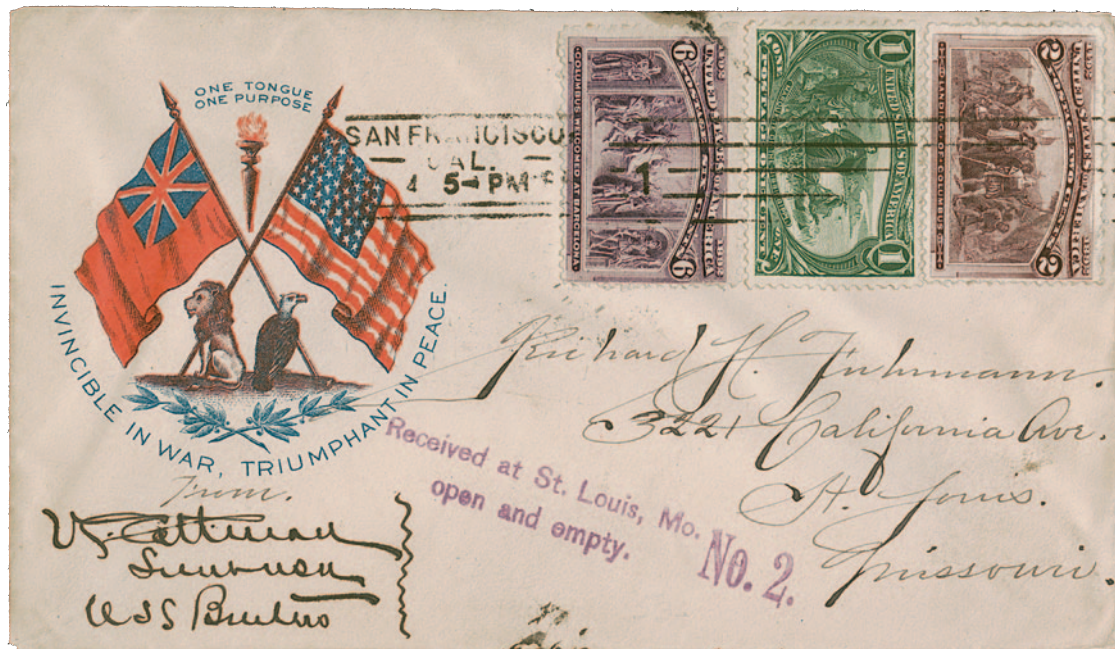 ONE TONGUE
ONE PURPOSE
INVINCIBLE IN WAR, TRIUMPHANT IN PEACE.
SAN FRANCISCO
CAL.
4 5-PM
1
COLUMBUS WELCOMED AT BARCELONA
6 6
UNITED STATES OF AMERICA
1 1
UNITED STATES OF AMERICA
LANDING OF COLUMBUS
2 2
UNITED STATES OF AMERICA
Richard H. Fuhrmann.
3221 California Ave.
St. Louis.
Missouri.
Received at St. Louis, Mo.
open and empty.
No. 2.
From.
USS